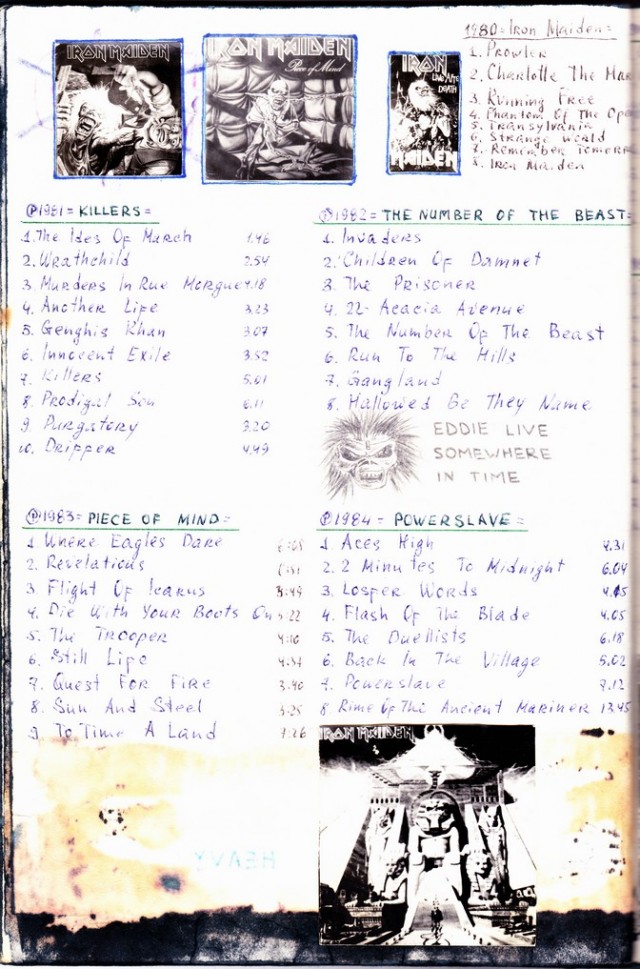 1980=Iron Maiden=
1. Prowler
2. Charlotte The Ha
3. Running Free
4. Phantom Of The Ope
5. Transylvania
6. Strange World
7. Remember Tomorr
8. Iron Maiden
IRON MAIDEN
IRON MAIDEN
Piece of Mind
IRON
LIVE AFTER
DEATH
MAIDEN
℗1981= KILLERS=
1. The Ides Of March 1.46
2. Wrathchild 2.54
3. Murders In Rue Morgue 4.18
4. Another Life 3.23
5. Genghis Khan 3.07
6. Innocent Exile 3.52
7. Killers 5.01
8. Prodigal Son 6.11
9. Purgatory 3.20
10. Drifter 4.49
℗1982= THE NUMBER OF THE BEAST=
1. Invaders
2. Children Of Damnet
3. The Prisoner
4. 22- Acacia Avenue
5. The Number Of The Beast
6. Run To The Hills
7. Gangland
8. Hallowed Be They Name
EDDIE LIVE
SOMEWHERE
IN TIME
℗1983= PIECE OF MIND=
1. Where Eagles Dare
2. Revelations
3. Flight Of Icarus 3.49
4. Die With Your Boots On 5.22
5. The Trooper 4.10
6. Still Life 4.37
7. Quest For Fire 3.40
8. Sun And Steel 3.25
9. To Time A Land 7.26
℗1984= POWERSLAVE=
1. Aces High 4.31
2. 2 Minutes To Midnight 6.04
3. Losfer Words 4.15
4. Flash Of The Blade 4.05
5. The Duellists 6.18
6. Back In The Village 5.02
7. Powerslave 7.12
8. Rime Of The Ancient Mariner 13.45
IRON MAIDEN
HEAVY